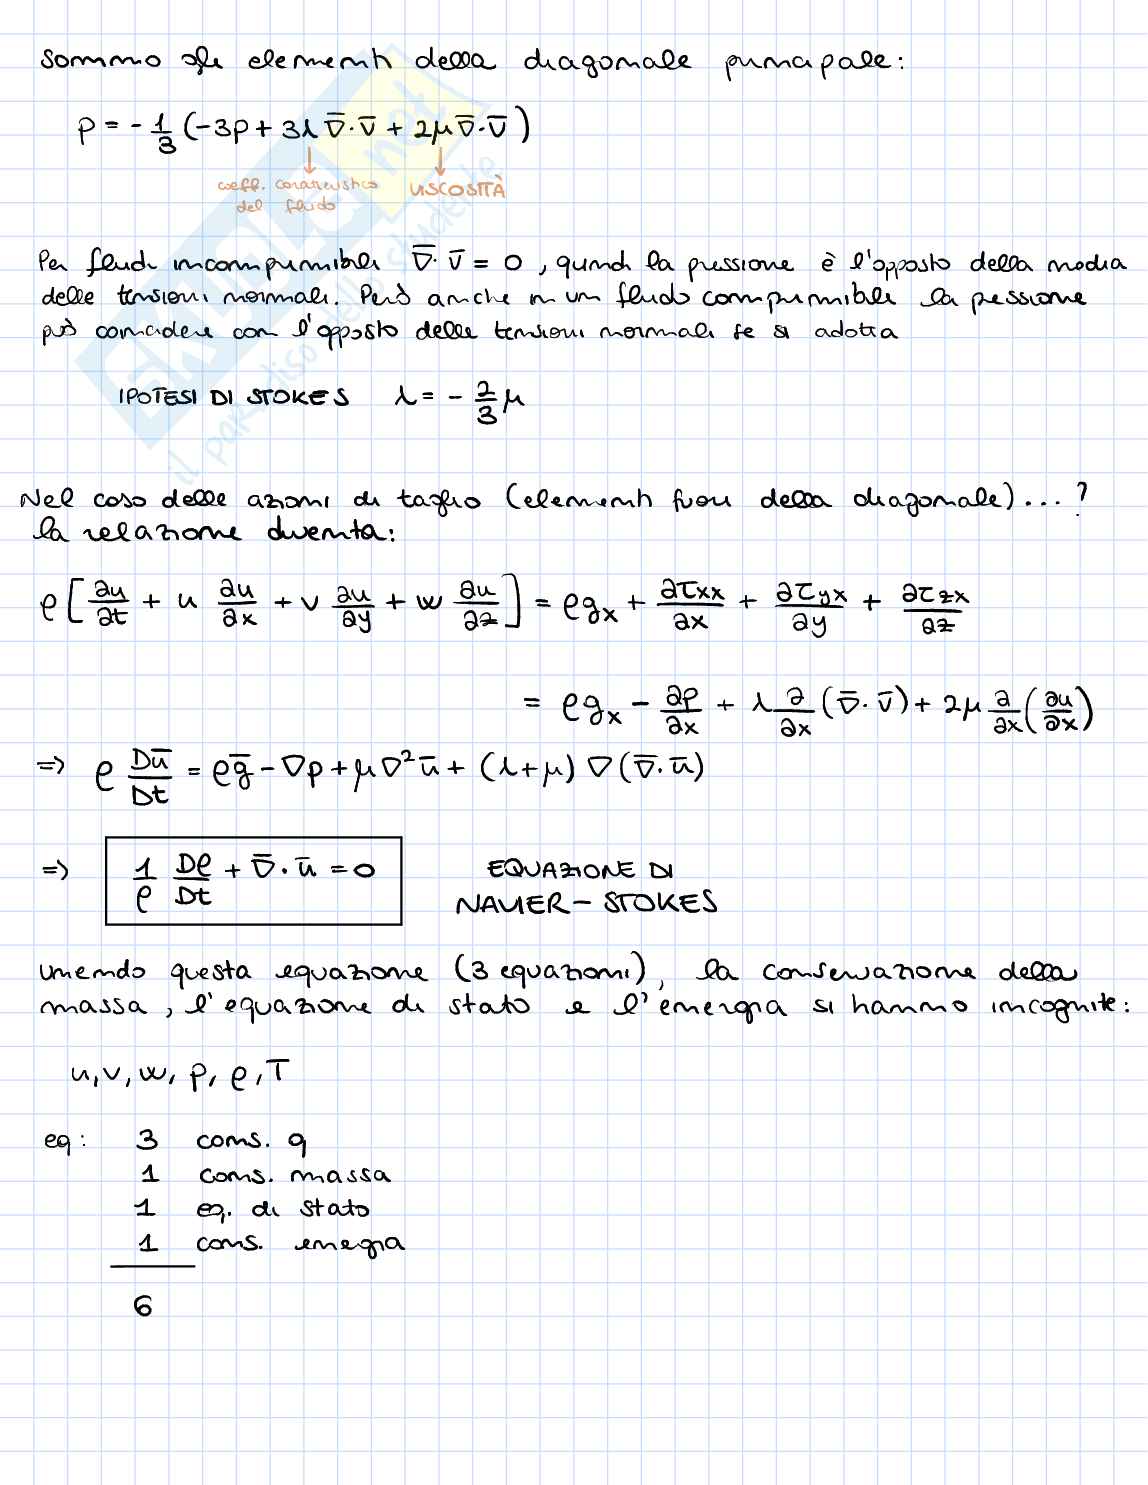 Sommo gli elementi della diagonale principale:
p = - 1/3 (-3p + 3λ ∇̅·v̅ + 2μ ∇̅·v̅)
coeff. caratteristico del fluido
VISCOSITÀ
Per fluidi incomprimibili ∇̅·v̅ = 0, quindi la pressione è l'opposto della media
delle tensioni normali. Però anche in un fluido comprimibile la pessione
può coincidere con l'opposto delle tensioni normali se si adotta
IPOTESI DI STOKES λ = - 2/3 μ
Nel caso delle azioni di taglio (elementi fuori della diagonale)... ?
la relazione diventa:
ρ [∂u/∂t + u ∂u/∂x + v ∂u/∂y + w ∂u/∂z] = ρg_x + ∂τxx/∂x + ∂τyx/∂y + ∂τzx/∂z
= ρg_x - ∂p/∂x + λ ∂/∂x (∇̅·v̅) + 2μ ∂/∂x (∂u/∂x)
⇒ ρ Du̅/Dt = ρg̅ - ∇p + μ∇²u̅ + (λ+μ) ∇(∇̅·u̅)
⇒ 1/ρ Dρ/Dt + ∇̅·u̅ = 0 EQUAZIONE DI
NAVIER - STOKES
Unendo questa equazione (3 equazioni), la conservazione della
massa, l'equazione di stato e l'energia si hanno incognite:
u, v, w, p, ρ, T
eq: 3 cons. q
1 cons. massa
1 eq. di stato
1 cons. enegia
6
skuola.net
il paradiso dello studente